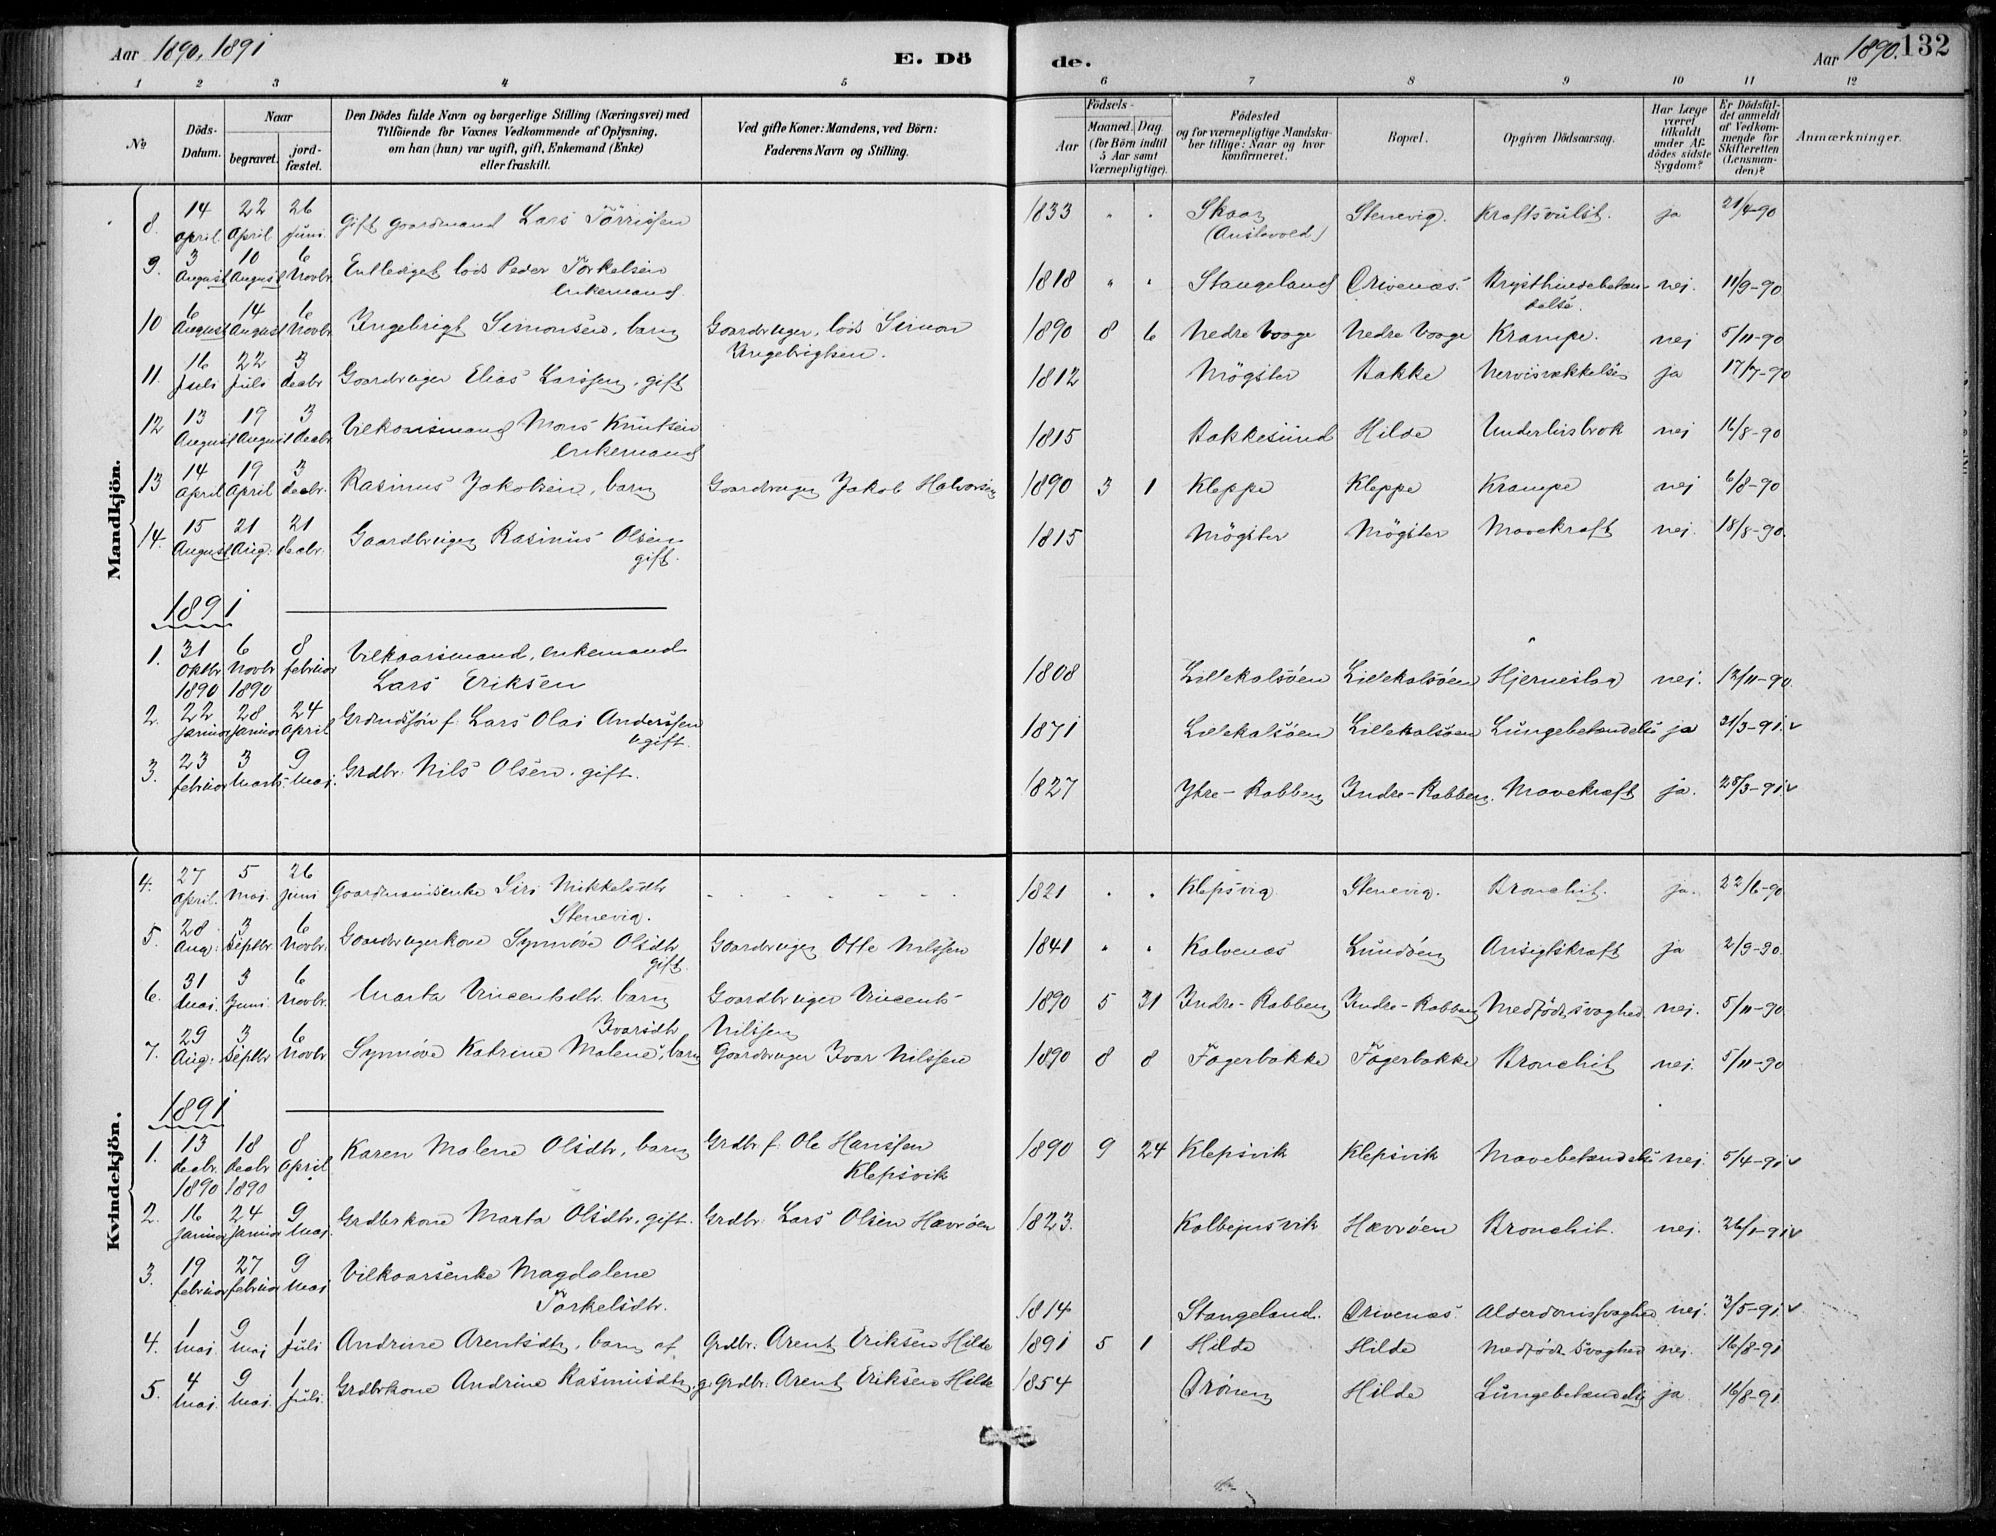 Aar 1890, 1891
E. Dö
de.
Aar 1890.
132
1 2 3 4 5 6 7 8 9 10 11 12
№
Döds-Datum.
Naar
begravet.
jordfæstet.
Den Dödes fulde Navn og borgerlige Stilling (Næringsvei) med
Tilföiende for Voxnes Vedkommende af Oplysning,
om han (hun) var ugift, gift, Enkemand (Enke)
eller fraskilt.
Ved gifte Koner: Mandens, ved Börn:
Faderens Navn og Stilling.
Födsels-
Aar
Maaned. Dag.
(for Börn indtil
5 Aar samt
Værnepligtige).
Födested
og for værnepligtige Mandska-
ber tillige: Naar og hvor
konfirmeret.
Bopæl.
Opgiven Dödsaarsag.
Har Læge
været
tilkaldt
under Af-
dödes sidste
Sygdom?
Er Dödsfal-
det anmeldt
af Vedkom-
mende for
Skifteretten
(Lensman-
den)?
Anmærkninger.
Mandkjön.
8. 14 April 22 April 26 Juni. Gift gaardmand Lars Törrissen 1833 " " Skaar Stenevig. Kraftsvulst. ja 21/4-90
9. 3 August 10 August 6 Novbr. Entlediget lods Peder Torkelsen 1818 " " Stangeland Drivenæs. Brysthindebetæn- nej. 11/9-90
enkemand
delse.
10 6 August 14 August 6 Novbr. Ingebrigt Simonsen, barn Gaardbruger, lods Simon 1890 8 6 Nedre Vaage Nedre Vaage Krampe. nej 5/11-90
Ingebrigtsen.
11. 16 Juli 22 Juli 3 decbr Gaardbruger Elias Larssen, gift 1812 Mögster Bakke Nervesvækkelse ja 17/7-90
12 13 August 19 August 3 decbr. Vilkaarsmand Mons Knutsen 1815 Bakkesund Hilde Underlivsbrok nej 16/8-90
enkemand
13 14 April 19 April 3 decbr. Rasmus Jakobsen, barn Gaardbruger Jakob Halvorsen 1890 3 1 Kleppe Kleppe Krampe nej 6/8-90
14. 15 August 21 Aug. 21 decbr. Gaardbruger Rasmus Olsen 1815 Mögster Mögster Mavekræft nej. 18/8-90.
gift.
1891
1. 31 Oktbr 1890 6 Novbr 1890 8 februar Vilkaarsmand, enkemand
Lars Eriksen 1808 Lillekalsöen Lillekalsöen Hjerneslag nej. 12/11-90.
2. 22 januar 28 januar 24 April Grdmdssön f. Lars Olai Anderssen 1871 Lillekalsöen Lillekalsöen Lungebetændelse ja 31/3-91.
ugift.
3. 23 februar 3 Marts 9 Mai. Grdbr. Nils Olsen, gift. 1827 Ytre-Rabben Indre-Rabben. Mavekræft ja. 28/3-91.
Kvindekjön.
4. 27 April. 5 Mai. 26 Juni Gaardmandsenke Siri Mikkelsdtr 1821 " " Klepsvig Stenevig. Bronchit. ja. 22/6-90
Stenevig.
5. 28 Aug. 3 Septbr 6 Novbr. Gaardbrugerkone Synnöve Olsdtr Gaardbruger Otte Nilssen 1841 " " Kalvenæs Lundöen Ansigtskræft ja 2/9-90.
gift.
6. 31 Mai. 3 Juni. 6 Novbr. Marta Vincentsdtr. barn Gaardbruger Vincents 1890 5 31 Indre-Rabben Indre-Rabben Medfödt svaghed nej. 5/11-90
Nilssen
Ivarsdtr
7. 29 Aug. 3 Septbr 6 Novbr. Synnöve Katrine Malene, barn Gaardbruger Ivar Nilssen 1890 8 8 Fagerbakke Fagerbakke Bronchit nej. 5/11-90
1891
1. 13 decbr 1890 18 decbr 1890 8 April Karen Malene Olsdtr, barn Grdbr f. Ole Hanssen 1890 9 24 Klepsvik Klepsvik Mavebetændelse nej. 5/4-91
Klepsvik
2. 16 januar 24 januar 9 Mai. Grdbrkone Marta Olsdtr, gift. Grdbr. Lars Olsen Hævröen 1823. Kolbejnsvik Hævröen Bronchit. nej. 26/1-91
3. 19 februar 27 februar 9 Mai Vilkaarsenke Magdalene
Torkelsdtr. 1814 Stangeland. Drivenæs. Alderdomssvaghed nej. 3/5-91
4. 1 Mai. 9 Mai 1 Juli Andrine Arentsdtr, barn af Grdbr. Arent Eriksen Hilde 1891 5 1 Hilde Hilde Medfödt svaghed nej. 16/8-91
5. 4 Mai. 9 Mai. 1 Juli. Grdbrkone Andrine Rasmusdtr, g. Grdbr. Arent Eriksen Hilde 1854 Drönen Hilde Lungebetændelse ja 16/8-91.